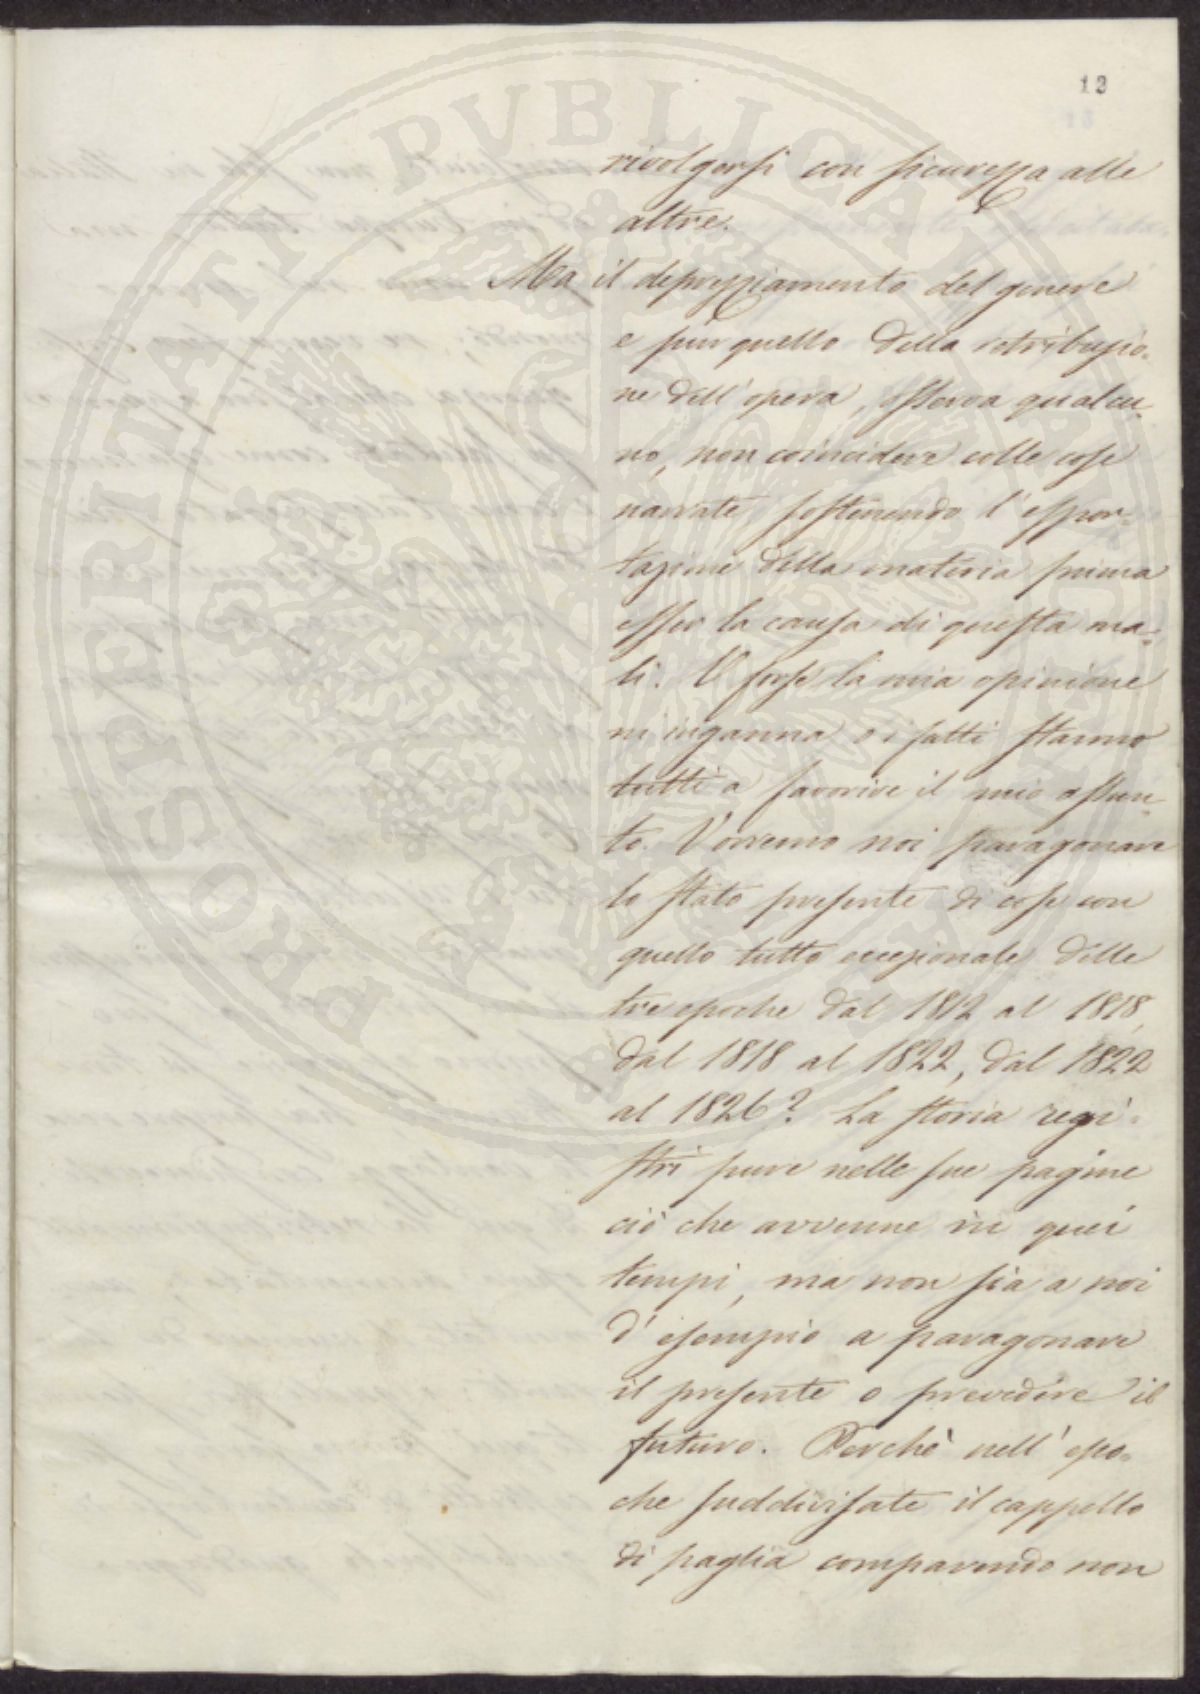 12
rivolgersi con sicurezza alle
altre.
Ma il deprezziamento del genere
e più quello della retribuzio-
ne dell'opera, osserva qualcu-
no, non coincidere colle cose
narrate, sostenendo l'espor-
tazione della materia prima
esser la causa di questa ma-
li. O forse la mia opinione
m'inganna o i fatti stanno
tutti a favorire il mio assun-
to. Vorremo noi paragonare
lo stato presente di cose con
quello tutto eccezionale delle
tre epoche dal 1812 al 1818,
dal 1818 al 1822, dal 1822
al 1826? La storia regi-
stri pure nelle sue pagine
ciò che avvenne in quei
tempi, ma non sia a noi
d'esempio a paragonare
il presente o prevedere il
futuro. Perchè nell'epo-
che suddivisate il cappello
di paglia comparendo non
PROSPERITATI PUBLICAE